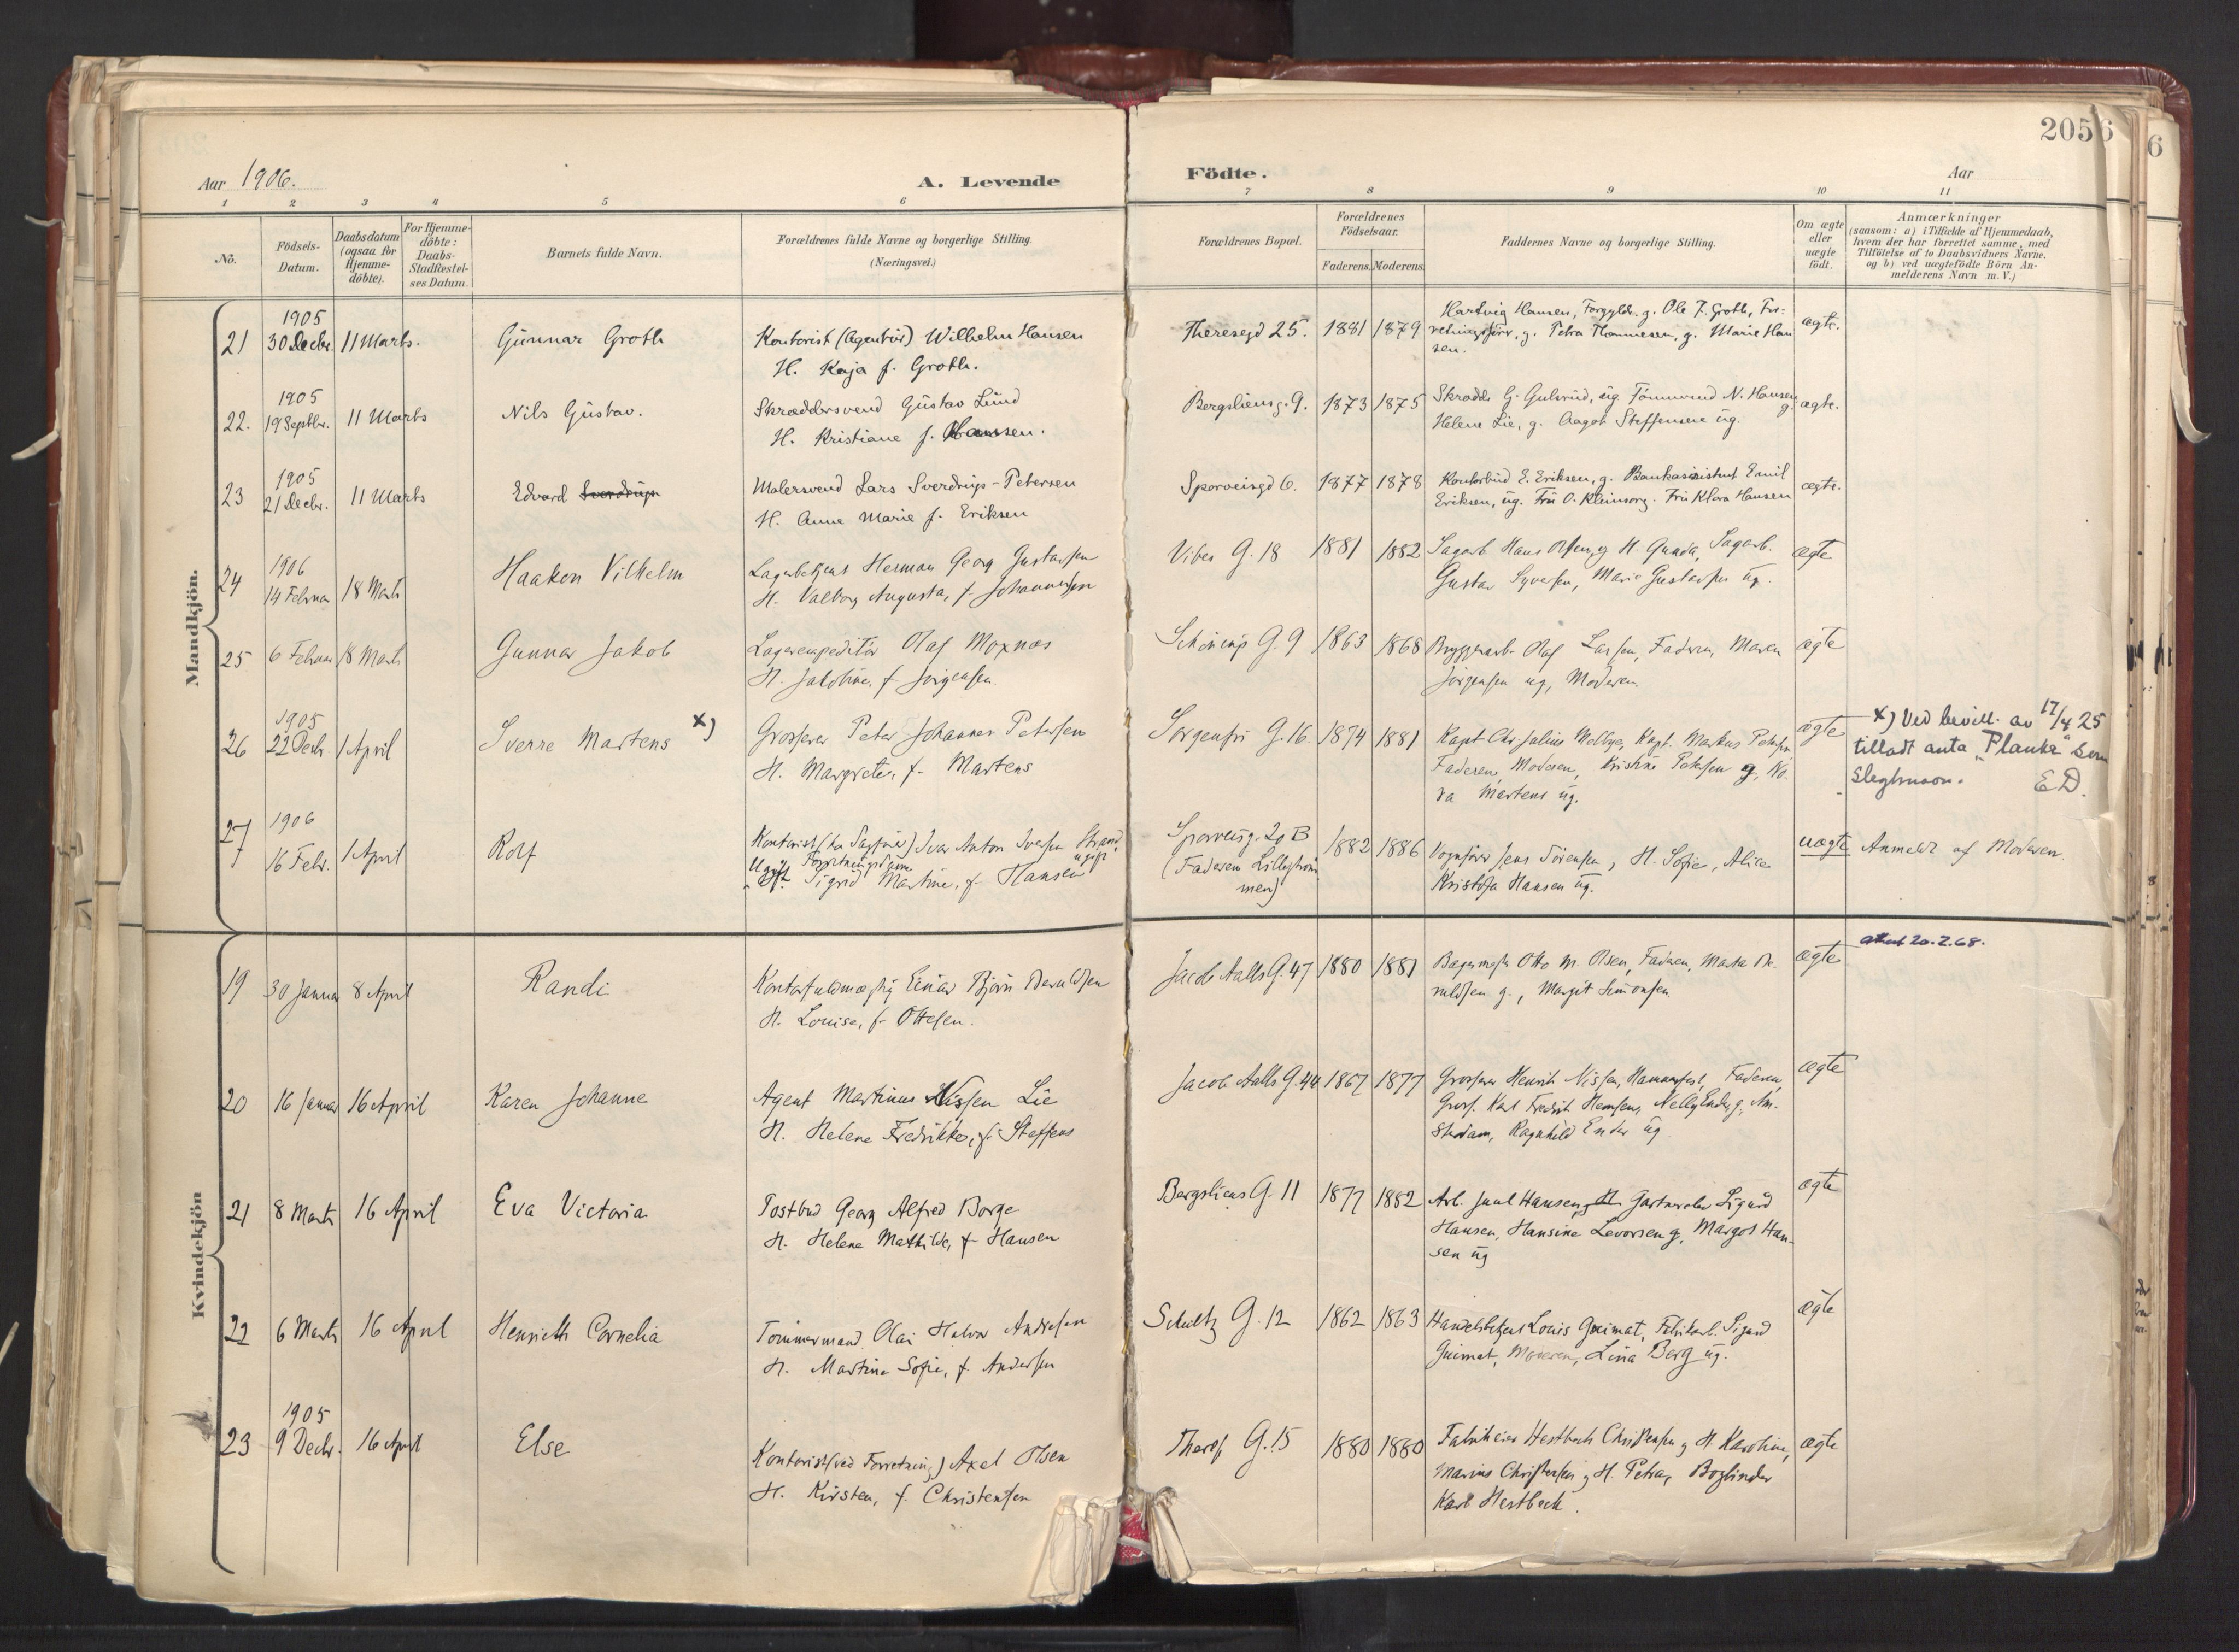 2056
6
Aar 1906.
A. Levende
Födte.
Aar
1 2 3 4 5 6 7 8 9 10 11
No.
Födsels-
Datum.
Daabsdatum
(ogsaa for
Hjemme-
döbte).
For Hjemme-
döbte:
Daabs-
Stadfæstel-
ses Datum.
Barnets fulde Navn.
Forældrenes fulde Navne og borgerlige Stilling.
(Næringsvei.)
Forældrenes Bopæl.
Forældrenes
Födselsaar.
Faderens.
Moderens.
Faddernes Navne og borgerlige Stilling.
Om ægte
eller
uægte
födt.
Anmærkninger
(saasom: a) i Tilfælde af Hjemmedaab,
hvem der har forrettet samme, med
Tilföielse af to Daabsvidners Navne,
og b) ved uægtefödte Börn An-
melderens Navn m. V.)
Mandkjön.
21
1905
30 Decbr.
11 Marts.
Gunnar Groth
Kontorist (Agentur) Wilhelm Hansen
H. Kaja f. Groth.
Theresegd 25.
1881
1879
Hartvig Hansen, Forgylder g. Ole F. Groth, For-
retningsförer, g. Petra Thommesen, g. Marie Han
sen.
ægte.
22.
1905
19 Septbr.
11 Marts
Nils Gustav.
Skræddersvend Gustav Lund
H. Kristiane f. Hansen.
Bergsliens g. 9.
1873
1875
Skrædder G. Gulsrud, ug Tömmermd N. Hansen g.
Helene Lie, g. Aagot Steffensen ug.
ægte.
23
1905
21 Decbr.
11 Marts
Edvard Sverdrup
Malersvend Lars Sverdrup-Petersen
H. Anne Marie f. Eriksen
Sporveisgd 6.
1877
1878
Kontorbud E. Eriksen, g. Bankassistent Emil
Eriksen, ug. Fru O. Kleinsorg. Fru Klara Hansen
ægte.
24
1906
14 Februar
18 Marts
Haakon Vilhelm
Lagerbetjent Herman Georg Gustavsen
H. Valborg Augusta, f. Johannessen
Vibes G. 18
1881
1882
Sagarb. Hans Olsen, g H. Gunda, Sagarb.
Gustav Syversen, Marie Gustavsen ug.
ægte
25
6 Februar
18 Marts
Gunnar Jakob
Lagerexpeditör Olaf Moxnæs
H. Jakobine, f. Jörgensen
Schönings G. 9
1863
1868
Bryggerarb. Olaf Larsen, Faderen, Maren
Jörgensen ug, Moderen.
ægte
26
1905
22 Decbr.
1 April
Sverre Martens x)
Grosserer Peter Johannes Petersen
H. Margrete, f. Martens
Sorgenfri G. 16.
1874
1881
Kapt. Chr. Julius Melbye, Kapt. Markus Petersen
Faderen, Moderen, Kristine Petersen g, No-
ra Martens ug.
ægte
x) Ved bevill. av 17/4 25
tilladt anta "Planke" som
slegtsnavn. E D.
27
1906
16 Febr.
1 April
Rolf
Kontorist (hos Sagförer) Ivar Anton Iversen Strand, ugift
Ugift Forretningsdame Sigrid Martine, f. Hansen
Sporveisg. 20 B
(Faderen Lilleström
men)
1882
1886
Vognfører Jens Sörensen, H. Sofie, Alice
Kristofa Hansen ug.
uægte
Anmeldt af Moderen.
Kvindekjön
19
30 Januar
8 April
Randi
Kontorfuldmægtig Einar Björn
H. Louise, f. Ottesen.
Jacob Aalls G. 47
1880
1881
Bagermester Otto M. Olsen, Faderen, Marta
g., Margit Simonsen
ægte
attest 20.2.68.
20
16 Januar
16 April
Karen Johanne
Agent Martinus Nissen Lie
H. Helene Fredrikke, f. Steffens
Jacob Aalls G. 44
1867
1877
Grosserer Henrik Nissen, Hammerfest, Faderen,
Gross. Karl Fredrik Hemsen, Nelly Ender, g, Am-
sterdam, Ragnhild Ender ug
ægte
21
8 Marts
16 April
Eva Victoria
Postbud Georg Alfred Borge
H. Helene Mathilde, f. Hansen
Bergsliens G. 11
1877
1882
Arb. Juul Hansen, g H. Gartnerelev Sigurd
Hansen, Hansine Levorsen g, Margot Han-
sen ug
ægte
22
6 Marts
16 April
Henriette Cornelia
Tömmermand Olai Halvor Andresen
H. Martine Sofie, f. Andersen
Schultz G. 12
1862
1863
Handelsbetjent Louis Guimat, Fabrikarb. Sigurd
Guimat, Moderen, Lina Berg ug.
ægte
23
1905
9 Decbr.
16 April
Else
Kontorist (ved Forretning) Axel Olsen
H. Kirsten, f. Christensen
Theres G. 15
1880
1880
Fabrikeier Hestbech Christensen g H. Karoline,
Marius Christensen g H. Petra, Bogbinder
Karl Hestbech.
ægte